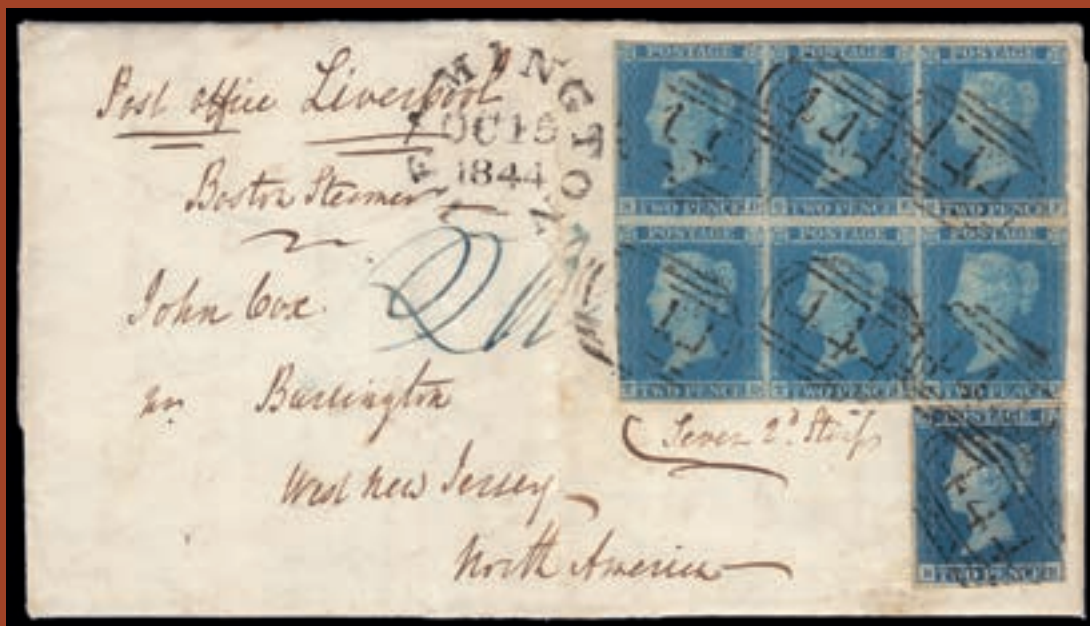 Post office Liverpool
Boston Steamer
John Cox
nr Burlington
West New Jersey
North America
Seven 2d Stamps
LEAMINGTON
OC 15
1844
POSTAGE POSTAGE POSTAGE
TWO PENCE TWO PENCE TWO PENCE
POSTAGE POSTAGE
TWO PENCE TWO PENCE TWO PENCE
POSTAGE
TWO PENCE